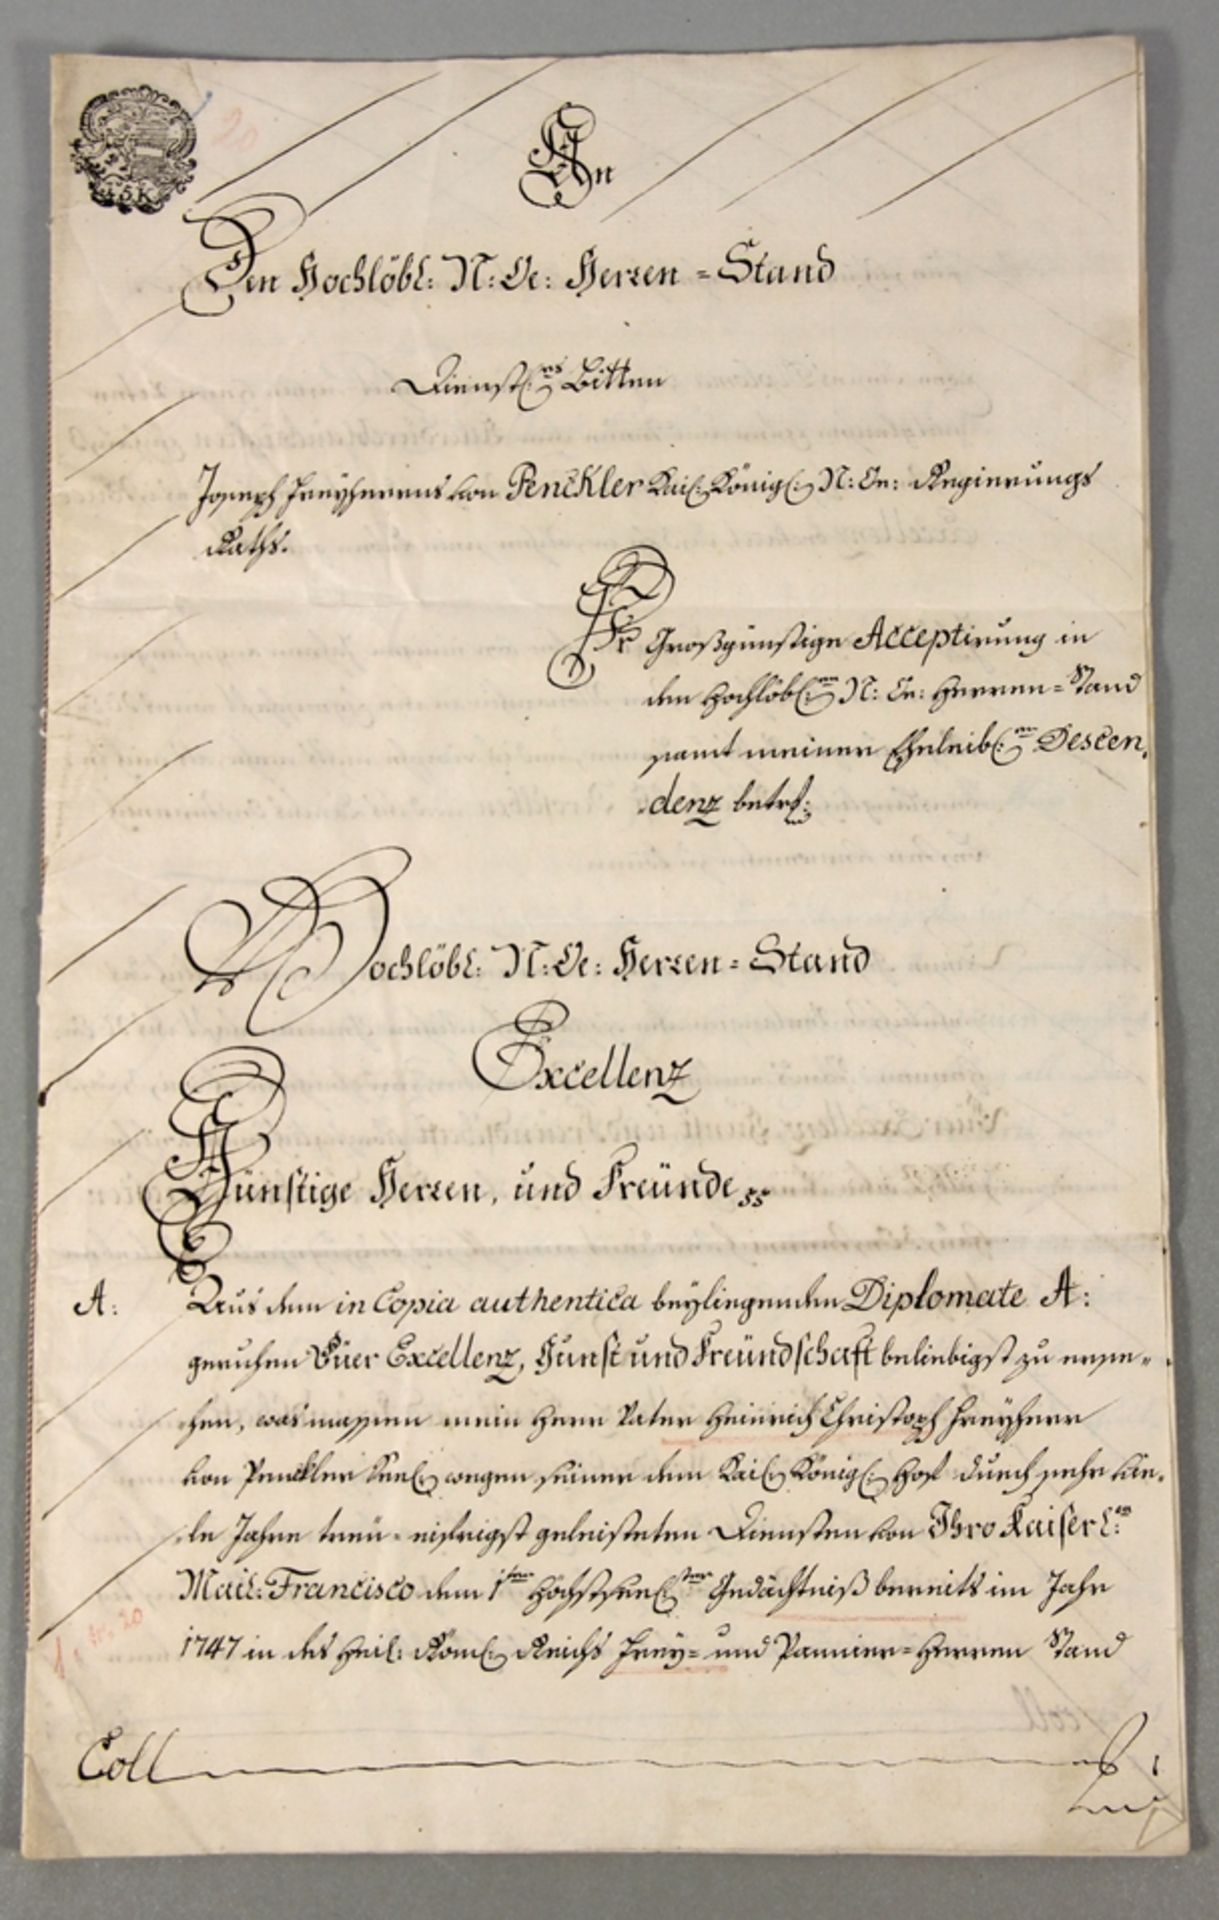 45K
20
An
Den Hochlöbl: N: Oe: Herren = Stand
Dienstl:es Bitten
Joseph Freyherrns von Penckler Kai: Königl: N: Oe: Regierungs
Raths.
Pr Großgünstige Acceptirung in
den Hochlöbl:en N: Oe: Herren = Stand
samt meiner Eheleibl:en Descen,
denz betrf:
Hochlöbl: N: Oe: Herren = Stand
Excellenz
Günstige Herren, und Freünde
A: Aus dem in Copia authentica beyliegenden Diplomate A:
geruhen Eüer Excellenz, Gunst und Freündschaft beliebigst zu erse=
hen, was massen mein Herr Vater Heinrich Christoph Freyherr
von Penckler seel: wegen seiner dem Kai: Königl: Hof durch sehr vie,
le Jahre treü = eifrigst geleisteten Diensten von Ihro Kaiserl:en
Mait: Francisco dem 1ten Höchstseel:ster Gedächtniß bereits im Jahr
1747 in des Heil: Röml: Reichs Frey = und Pannier = Herren Stand
Nr. 20
Coll